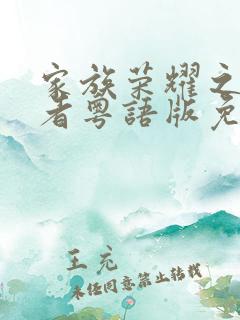 家族荣耀之
者粤語版免
王充
未经同意禁止转载